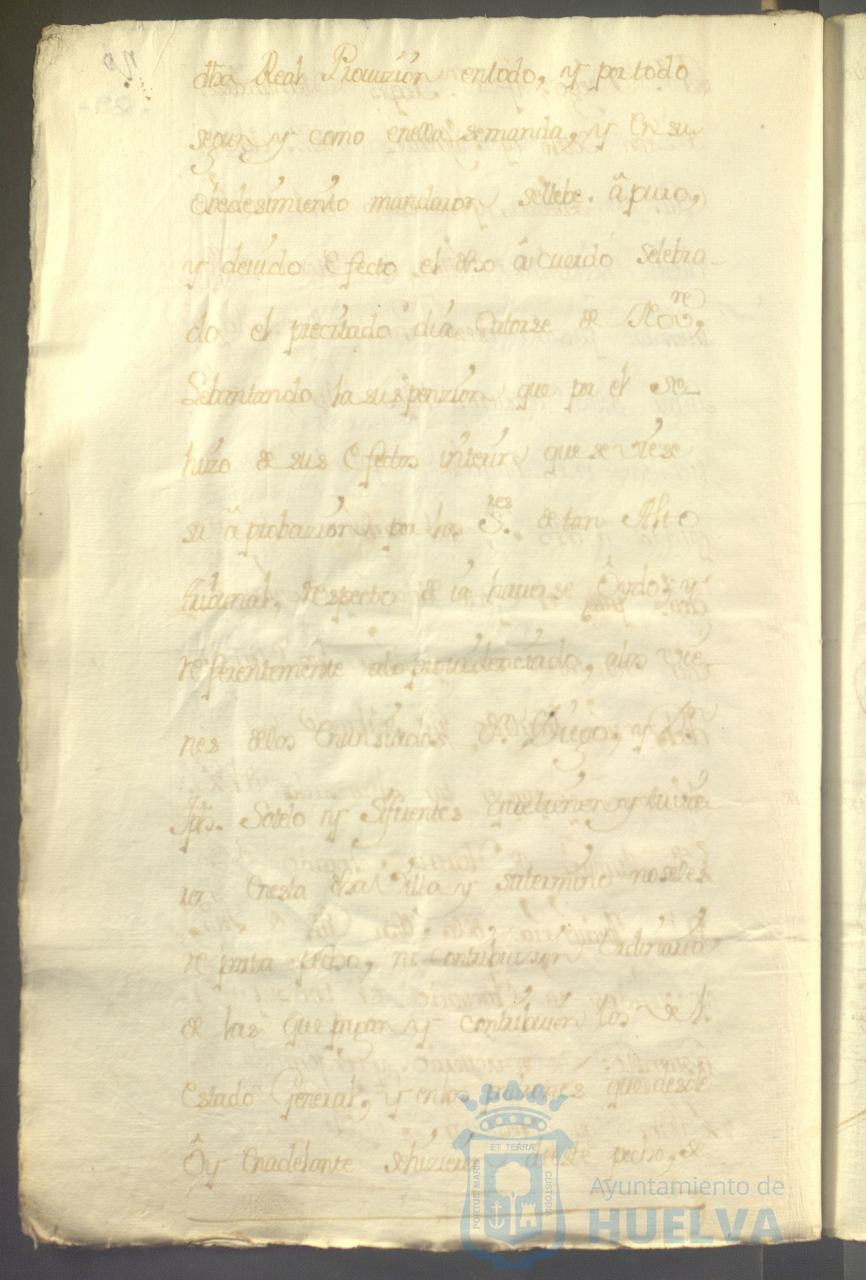 dha Real Provizion entodo, y portodo
segun y como enella semanda, y en su
obedesimiento mandaron sellebe. â puro,
y devido efecto el dho âcuerdo selebra-
do el precitado dia catorse de Nov.re,
Lebantando la suspenzion que por el se-
hizo de sus efectos interin que se viese
su âprobazion por los S.res de tan Alto
tribunal, respecto de ia haverse Ôydo, y
referentemente alo providenciado, alos vie-
nes delos enunsiados D.n Diego, y D.n
Jph. Sotelo y Sifuentes que tienen y tuvie
ren enesta dha Villa y su termino noseles
reparta pecho, ni contribuzion ordinaria
de las que pagan y contribuien los del
estado General, y enlos padrones que desde
Ôy enadelante sehizieren deeste pecho, se
ET TERRÆ
PORTUS MARIS
CUSTODIA
Ayuntamiento de
HUELVA